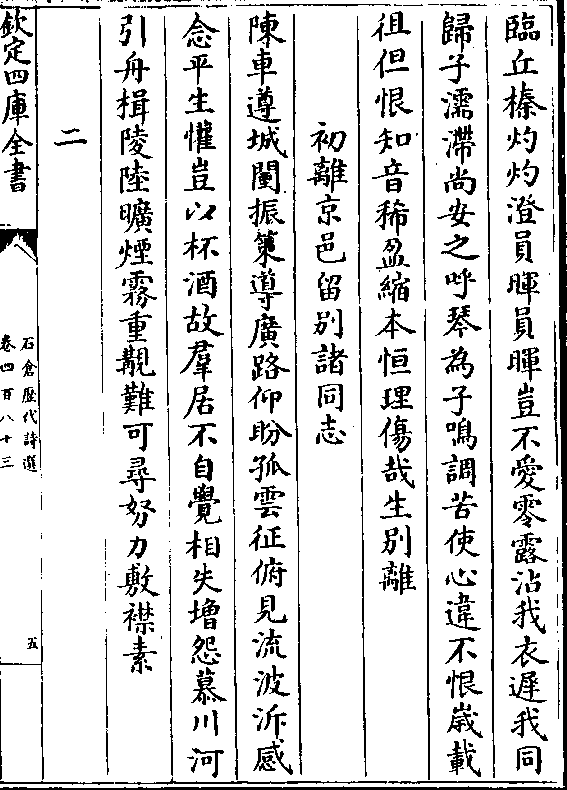 臨丘榛灼灼澄員暉員暉豈不愛零露沾我衣遲我同
歸子濡滯尚安之呼琴為子鳴調苦使心違不恨歲載
徂但恨知音稀盈縮本恒理傷哉生別離
初離京邑留別諸同志
陳車遵城闉振策導廣路仰盼孤雲征俯見流波泝感
念平生懽豈以杯酒故羣居不自覺相失增怨慕川河
引舟楫陵陸曠煙霧重覯難可尋努力敷襟素
二
欽定四庫全書
石倉歷代詩選
卷四百八十三
五